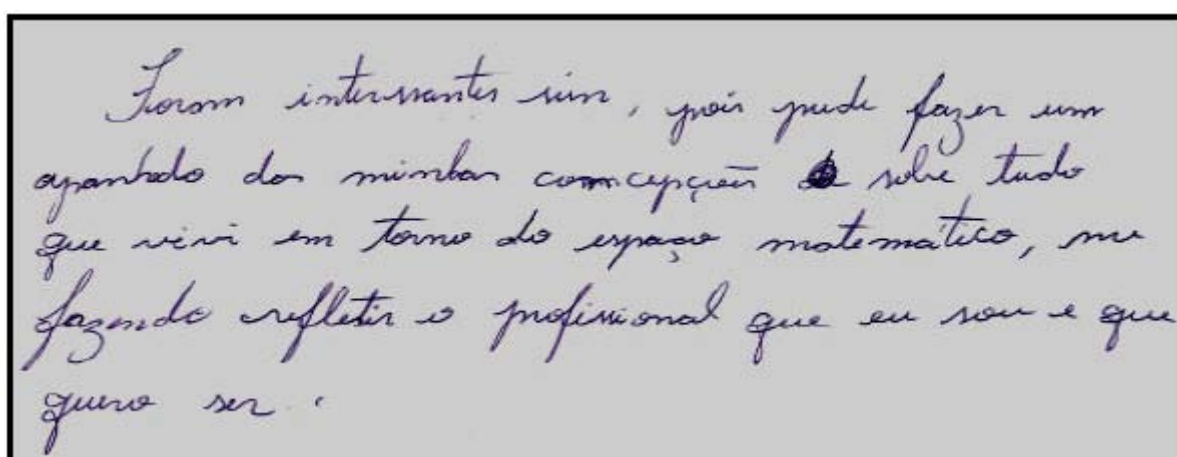 Foram interessantes sim, pois pude fazer um
apanhado das minhas concepções sobre tudo
que vivi em torno do espaço matemático, me
fazendo refletir o profissional que eu sou e que
quero ser.